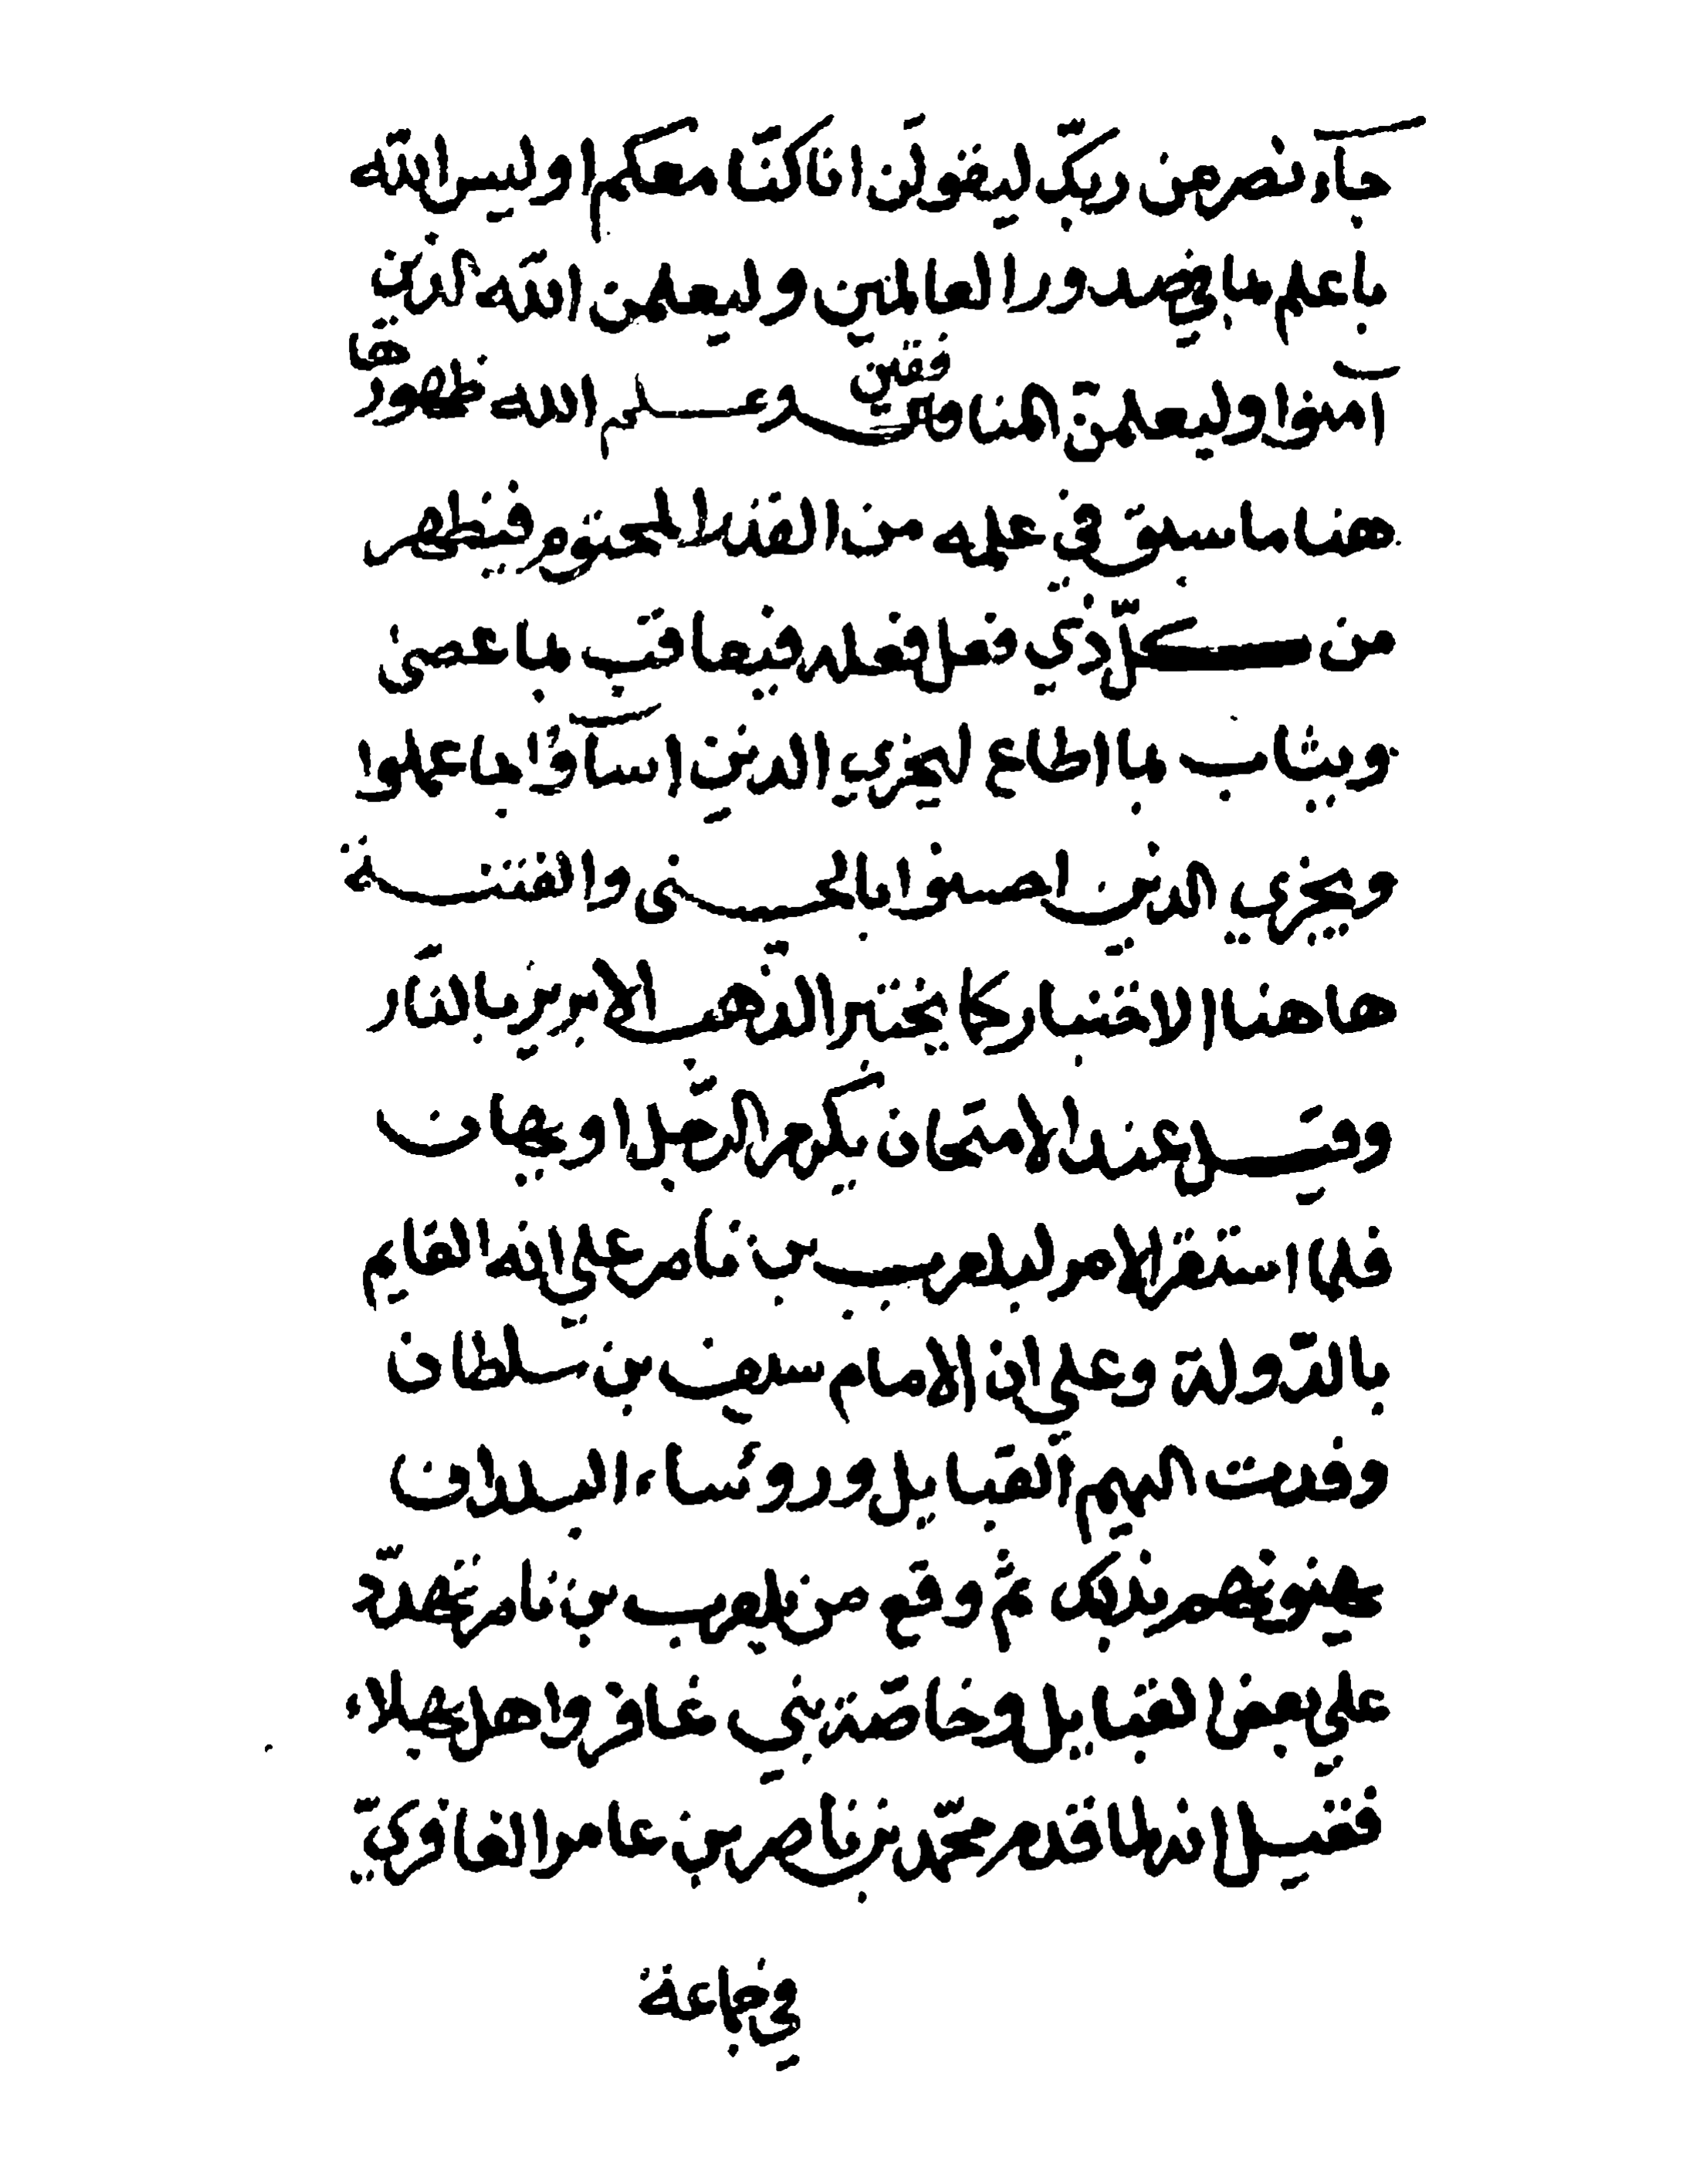 جآء نصر من ربّك ليقولَن انا كنّا معكم اوليس الله
باعلم بما في صدور العالمين وليعلمن الله الذين
آمنوا وليعلمنّ المنافقين وعلم الله ظهورها
هنا ما سبق في علمه من القدر المحتوم فيظهر
من كلّ ذي فعل فعله فيعاقب بما عصى
ويثاب بما اطاع ليجزي الذين اسآؤا بما عملوا
ويجزي الذين احسنوا بالحسنى والفتنة
هاهنا الاختبار كما يختبر الذّهب الابريز بالنّار
وقيل عند الامتحان يكرم الرّجل او يهان
فلما استقر الامر لبلعرب بن نامر علي انه القايم
بالدّولة وعلي ان الامام سيف بن سلطان
وفدت اليهم القبايل ورؤساء البلدان
يهنونهم بذلك ثم وقع من بلعرب بن نامر تهدّد
علي بعض القبايل وخاصّة بني غافر واهل بهلاء
فقيل انه لما قدم محمّد بن ناصر بن عامر الغافريّ
في جماعة